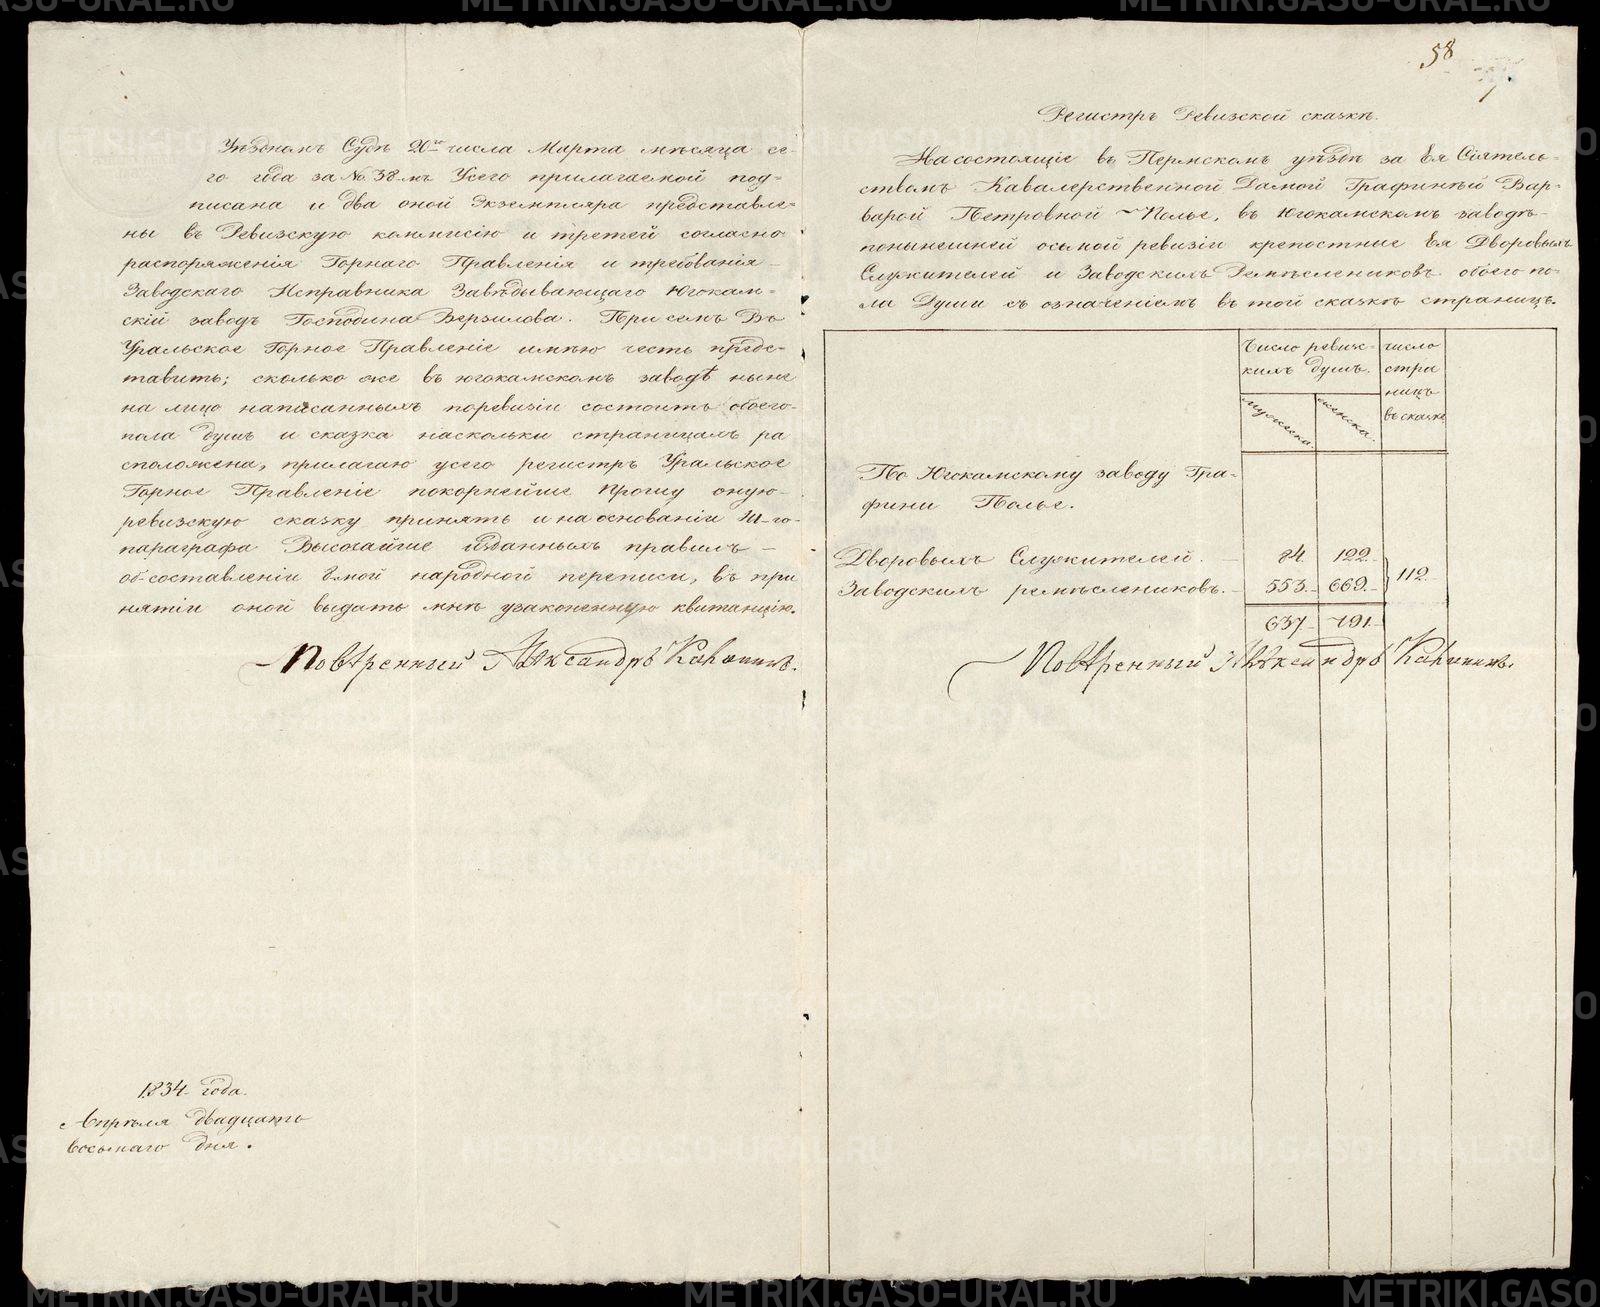 Уѣздномъ Судѣ 20го числа Марта мѣсяца се-
го года за №. 38-мъ Усего прилагаемой под-
писана и два оной Экземпляра представле-
ны въ Ревизскую коммисію и третей согласно
распоряженія Горнаго Правленія и требованія
Заводскаго Исправника Завѣдывающаго Югокам-
скій заводъ Господина Верзилова. При семъ Въ
Уральское Горное Правленіе имѣю честь предс-
тавить; сколько же въ югокамскомъ заводѣ нынѣ
на лицо написанныхъ поревизіи состоитъ обоего-
пола душъ и сказка наскольки страницахъ ра
сположена, прилагаю усего регистръ Уральское
Горное Правленіе покорнейше Прошу оную-
ревизскую сказку принять и на основаніи
параграфа Высочайше изданныхъ правилъ —
об составленіи 8мой народной переписи, въ при
нятіи оной выдать мнѣ узаконенную квитанцію.
Повѣренный Александръ
1834 года.
Апрѣля двадцать
восьмаго дня.
58
Регистръ Ревизской сказкѣ.
На состоящіе въ Пермскомъ уѣздѣ за Ея Сіятель-
ствомъ Кавалерственной Дамой Графиней Вар-
варой Петровной Полье, въ Югокамскомъ заводѣ-
понынешней осьмой ревизіи крепостные Ея Дворовыхъ
Служителей и Заводскихъ Ремѣслениковъ обоего по-
ла Души съ означеніемъ въ той сказкѣ страницъ.
Число ревизс-
кихъ душъ.
мужеска
женска.
число
стра
ницъ
въ сказкѣ
По Югокамскому заводу Гра-
фини Полье.
Дворовыхъ Служителей. — 84. 122.
Заводскихъ ремѣслениковъ. — 553. 669. 112.
637 791.
Повѣренный Александръ
METRIKI.GASO-URAL.RU